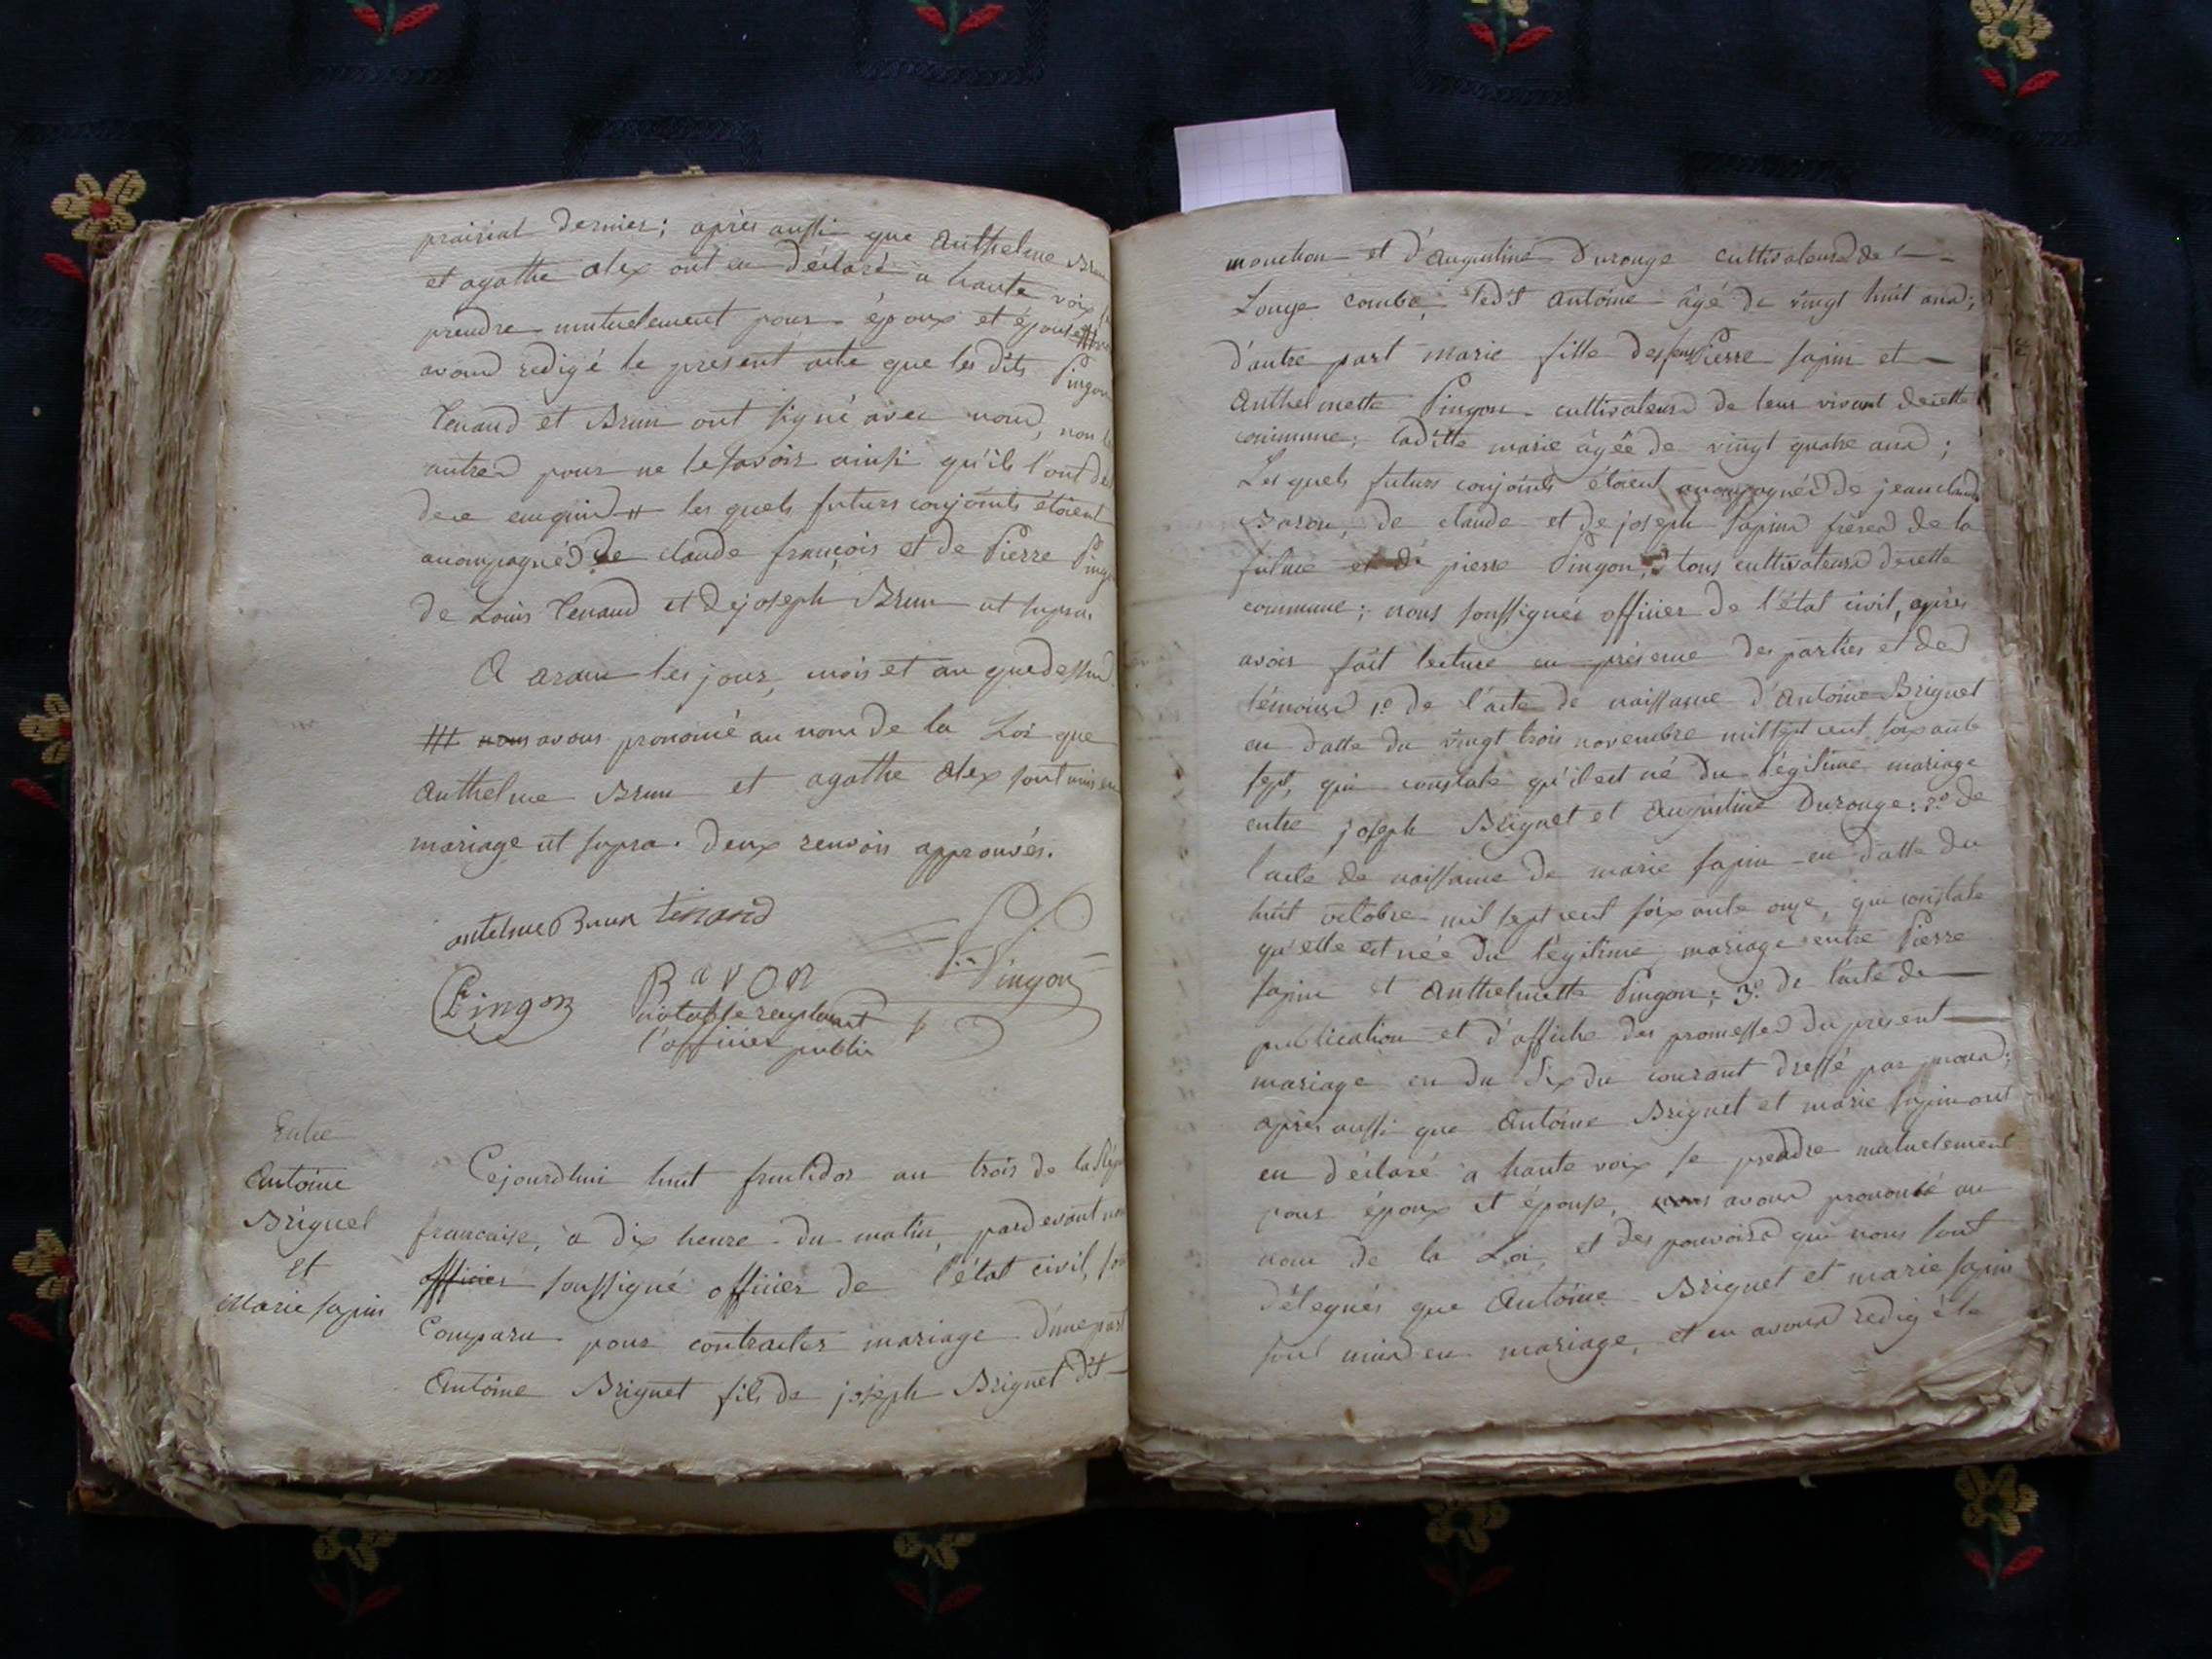 prairial dernier; après aussi que Anthelme Brun
et agathe alex ont eu déclaré a haute voix
prendre mutuelement pour époux et épouse
avons redigé le present acte que les dits Pingon
Tenand et Brun ont signé avec nous, non
autres pour ne le savoir ainsi qu'ils l'ont
de ce enquis # les quels futurs conjoints étoient
acompagnés de claude françois et de Pierre
de Louis Tenand et de joseph Brun ut supra.
A aran les jour, mois et an que dessus
### nous avons prononcé au nom de la Loi que
Anthelme Brun et agathe alex sont unis en
mariage ut supra. deux renvois approuvés.
antelme Brun tenand
Pingon
Bavon
notable remplacent
l'officier public
Pingon
Entre
Antoine
Briguet
Et
Marie sapin
Cejourdhui huit fructidor an trois de la
francaise, à dix heure du matin, pardevant
officier soussigné officier de l'état civil,
Comparu pour contracter mariage d'une part
Antoine Briguet fils de joseph Briguet dit
mouchon et d'Augustine Durouge cultivateurs de
Longe combe, ledit Antoine âgé de vingt huit ans;
d'autre part marie fille des feus Pierre sapin et
Anthelmette Pingon cultivateurs de leur vivant de cette
commune; laditte marie âgée de vingt quatre ans;
Les quels futurs conjoints étoient acompagnés de jean claude
Bavon, de claude et de joseph sapins fréres de la
future et de pierre Pingon, tous cultivateurs de cette
commune; nous soussignés officier de l'état civil, après
avoir fait lecture en présence des parties et des
témoins 1º de l'acte de naissance d'Antoine Briguet
en datte du vingt trois novembre mil sept cent soixante
sept, qui constate qu'il est né du légitime mariage
entre joseph Briguet et Augustine Durouge: 2º de
l'acte de naissance de marie sapin en datte du
huit octobre mil sept cent soixante onze, qui constate
qu'elle est née du légitime mariage entre Pierre
sapin et Anthelmette Pingon; 3º. de l'acte de
publication et d'affiche des promesses du présent
mariage en du six du courant dressé par nous;
après aussi que Antoine Briguet et marie sapin ont
eu déclaré a haute voix se prendre mutuelement
pour époux et épouse, nous avons prononcé au
nom de la Loi, et des pouvoirs qui nous sont
délegués que Antoine Briguet et marie sapin
sont unis en mariage, et en avons redigé le